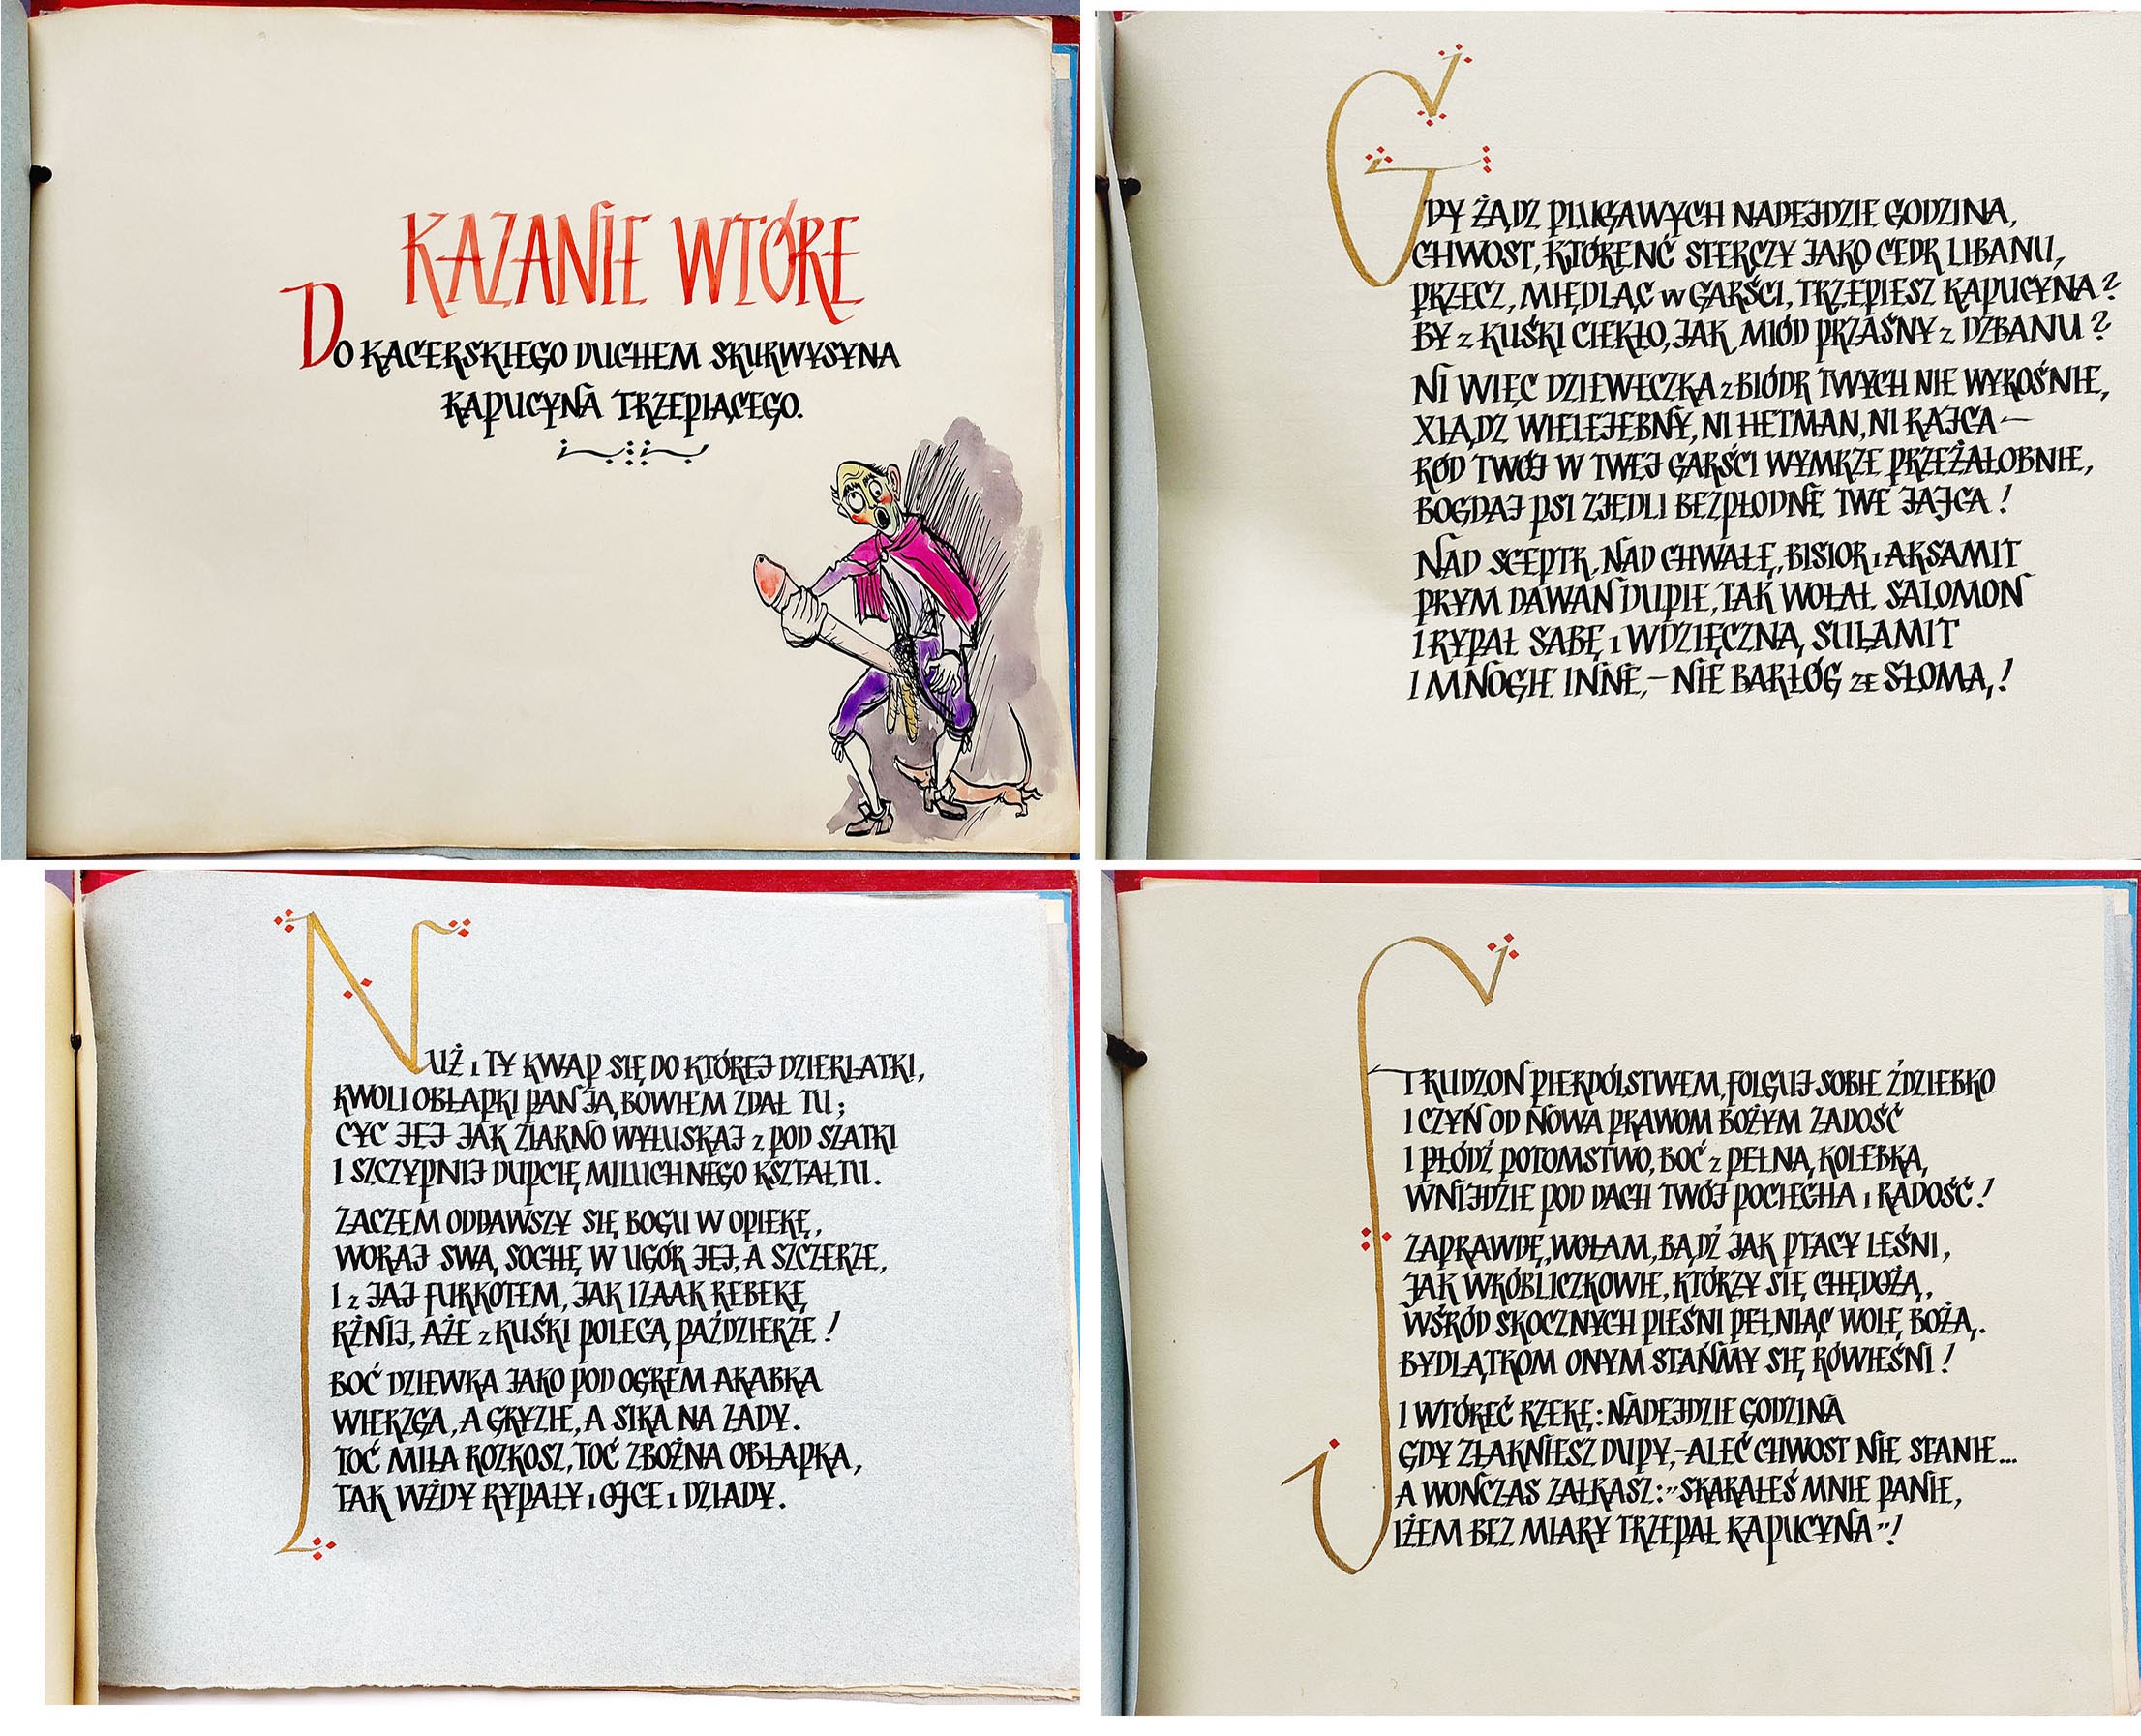 KAZANIE WTÓRE
DO KACERSKIEGO DUCHEM SKURWYSYNA
KAPUCYNA TRZEPIĄCEGO.
GDY ŻĄDZ PLUGAWYCH NADEJDZIE GODZINA,
CHWOST, KTÓRENĆ STERCZY JAKO CEDR LIBANU,
PRZECZ, MIĘDLĄC W GARŚCI, TRZEPIESZ KAPUCYNA?
BY Z KUŚKI CIEKŁO, JAK MIÓD PRZAŚNY Z DZBANU?
NI WIĘC DZIEWECZKA Z BIÓDR TWYCH NIE WYROŚNIE,
XIĄDZ WIELEJEBNY, NI HETMAN, NI RAJCA —
RÓD TWÓJ W TWEJ GARŚCI WYMRZE PRZEŻAŁOBNIE,
BOGDAJ PSI ZJEDLI BEZPŁODNE TWE JAJCA!
NAD SCEPTR, NAD CHWAŁĘ, BISIOR I AKSAMIT
PRYM DAWAN DUPIE, TAK WOŁAŁ SALOMON
I RYPAŁ SABĘ I WDZIĘCZNĄ SULAMIT
I MNOGIE INNE, – NIE BARŁÓG ZE SŁOMĄ!
NUŻ I TY KWAP SIĘ DO KTÓREJ DZIERLATKI,
KWOLI OBŁAPKI PAN JĄ BOWIEM ZDAŁ TU;
CYC JEJ JAK ZIARNO WYŁUSKAJ Z POD SZATKI
I SZCZYPNIJ DUPCIĘ MILUCHNEGO KSZTAŁTU.
ZACZEM ODDAWSZY SIĘ BOGU W OPIEKĘ,
WORAJ SWĄ SOCHĘ W UGÓR JEJ, A SZCZERZE,
I Z JAJ FURKOTEM, JAK IZAAK REBEKĘ
RŻNIJ, AŻE Z KUŚKI POLECĄ PAŹDZIERZE!
BOĆ DZIEWKA JAKO POD OGREM ARABKA
WIERZGA, A GRYZIE, A SIKA NA ZADY.
TOĆ MIŁA ROZKOSZ, TOĆ ZBOŻNA OBŁAPKA,
TAK WŻDY RYPAŁY I OJCE I DZIADY.
STRUDZON PIERDÓLSTWEM, FOLGUJ SOBIE ŹDZIEBKO
I CZYŃ OD NOWA PRAWOM BOŻYM ZADOŚĆ
I PŁÓDŹ POTOMSTWO, BOĆ Z PEŁNĄ KOLEBKĄ
WNIJDZIE POD DACH TWÓJ POCIECHA I RADOŚĆ!
ZAPRAWDĘ, WOŁAM, BĄDŹ JAK PTACY LEŚNI,
JAK WRÓBLICZKOWIE, KTÓRZY SIĘ CHĘDOŻĄ,
WŚRÓD SKOCZNYCH PIEŚNI PEŁNIĄC WOLĘ BOŻĄ.
BYDLĄTKOM ONYM STAŃMY SIĘ RÓWIEŚNI!
I WTÓREĆ RZEKĘ: NADEJDZIE GODZINA
GDY ZŁAKNIESZ DUPY, – ALEĆ CHWOST NIE STANIE...
A WONCZAS ZAŁKASZ: "SKARAŁEŚ MNIE PANIE,
IŻEM BEZ MIARY TRZEPAŁ KAPUCYNA"!